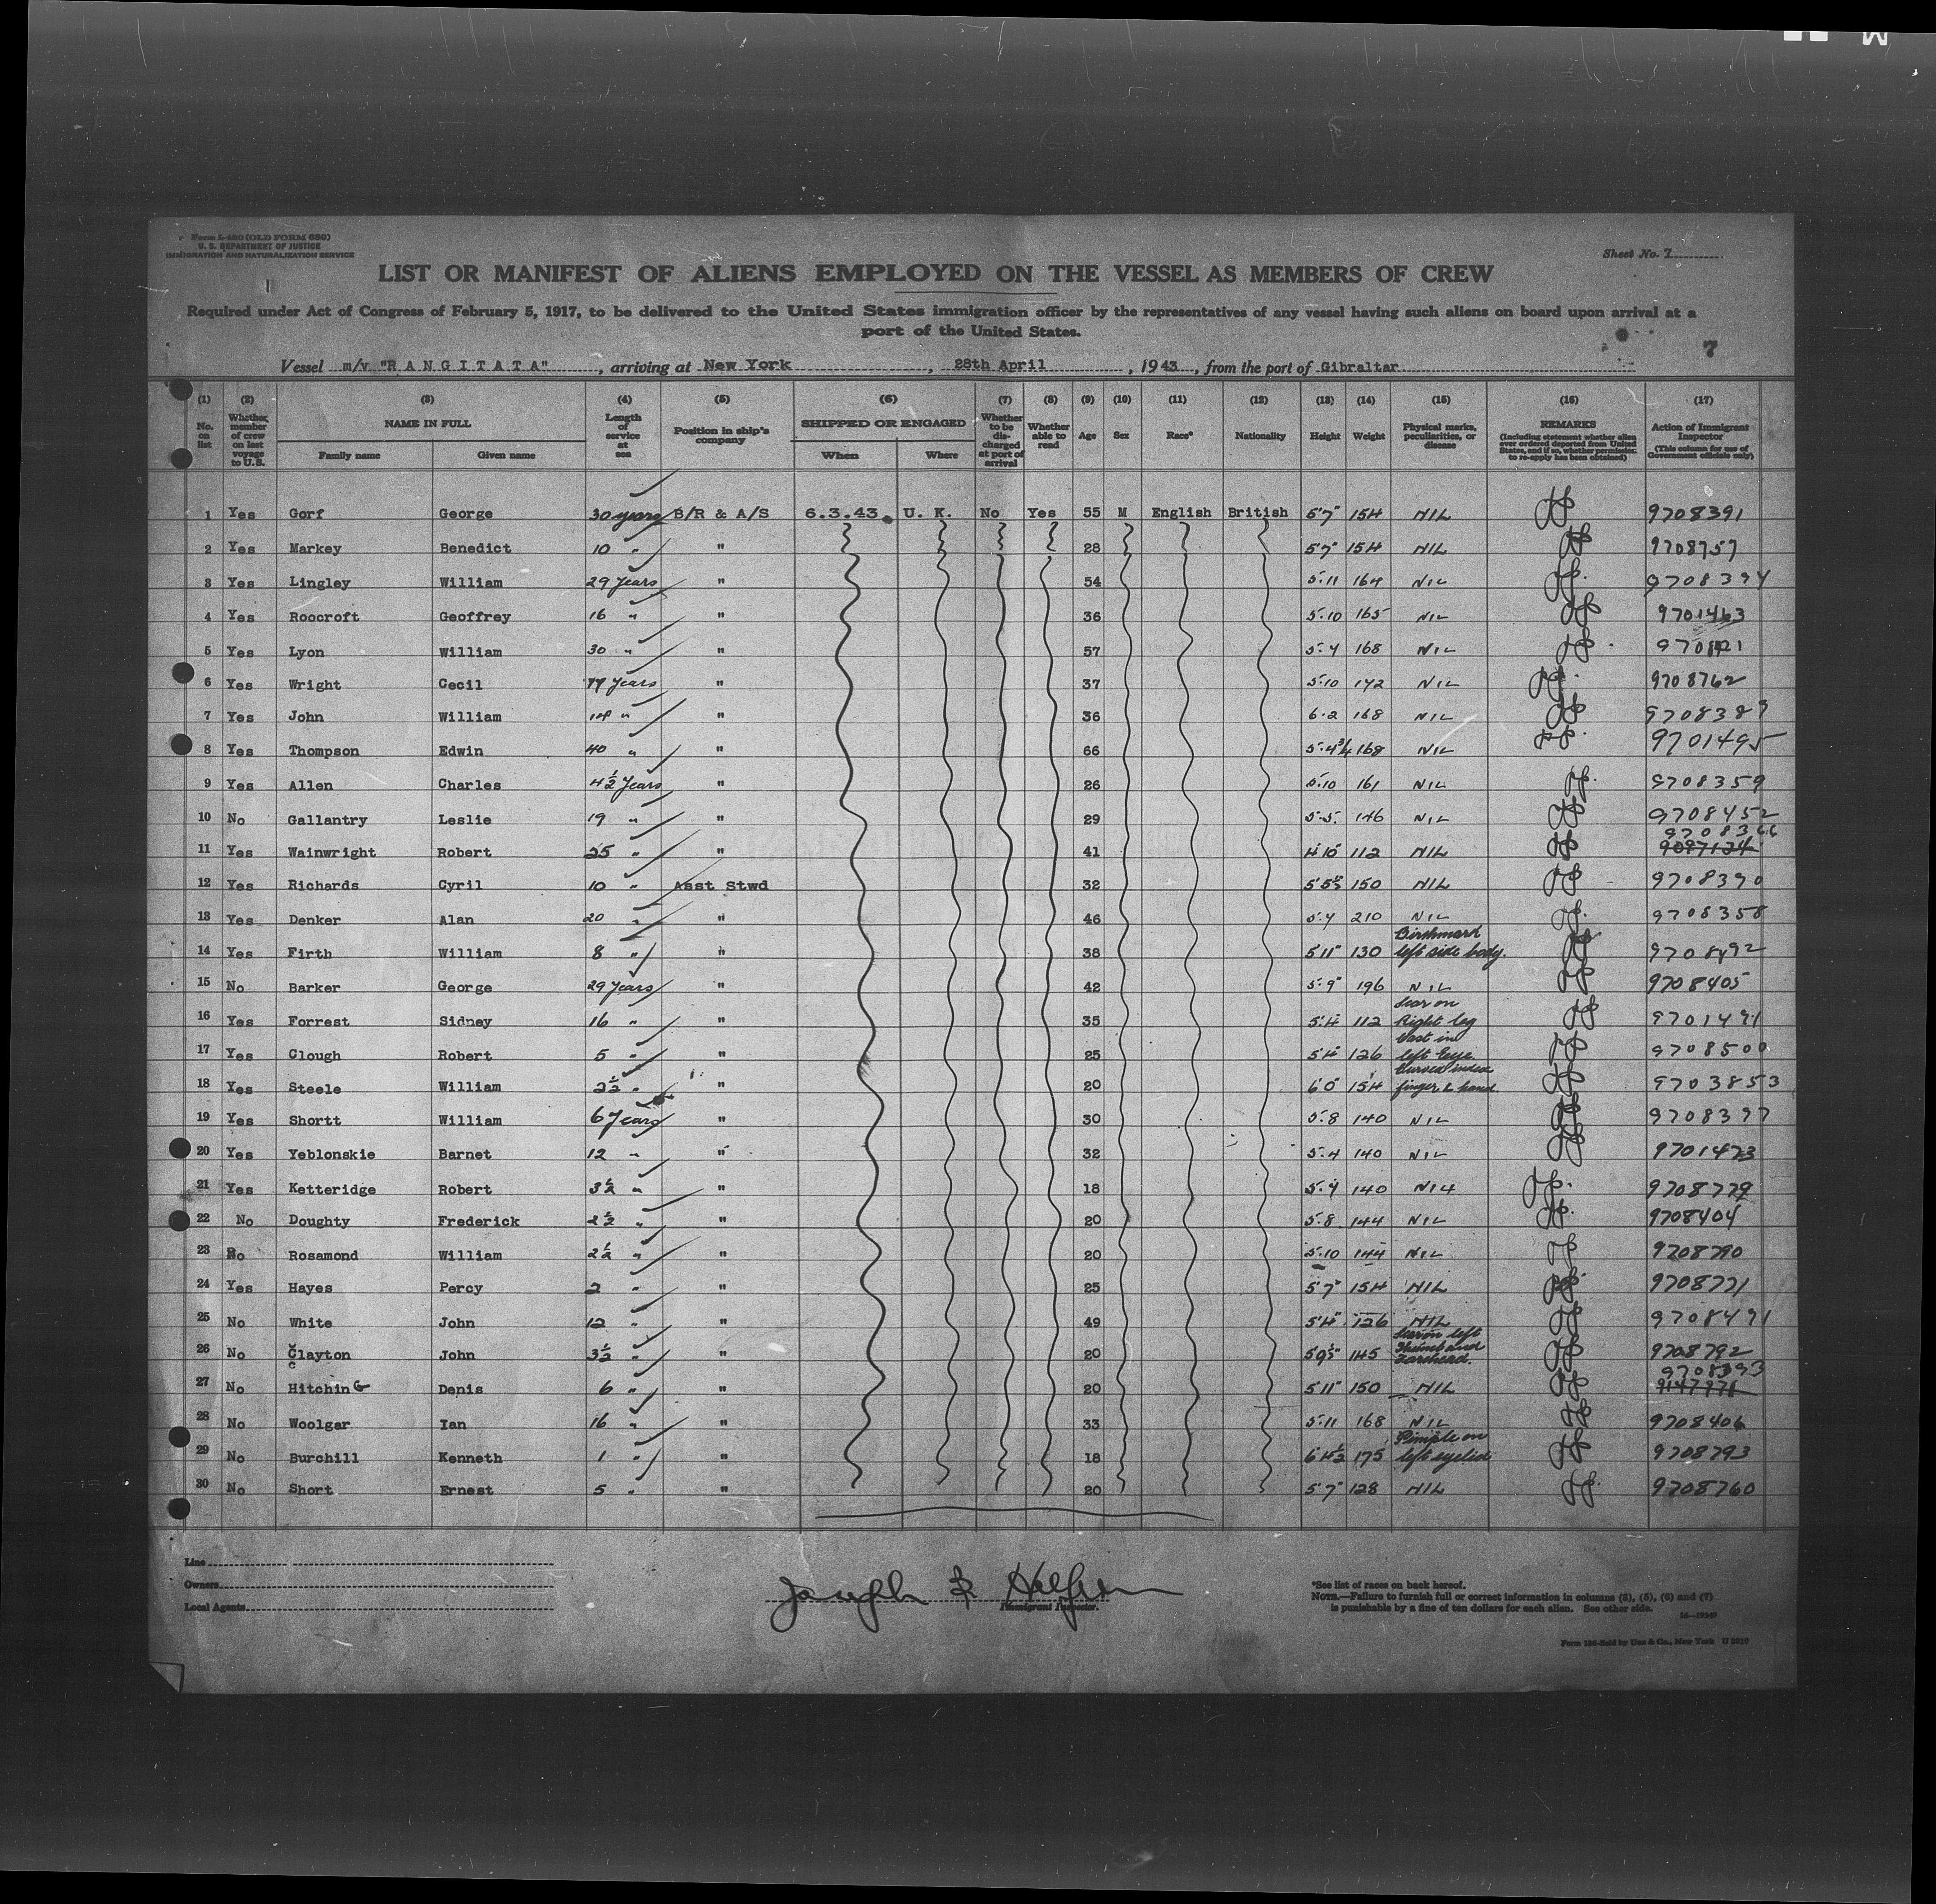 Form I-480 (OLD FORM 680)
U. S. DEPARTMENT OF JUSTICE
IMMIGRATION AND NATURALIZATION SERVICE
Sheet No. 7
LIST OR MANIFEST OF ALIENS EMPLOYED ON THE VESSEL AS MEMBERS OF CREW
Required under Act of Congress of February 5, 1917, to be delivered to the United States immigration officer by the representatives of any vessel having such aliens on board upon arrival at a
port of the United States.
7
Vessel m/v "RANGITATA", arriving at New York, 28th April, 1943, from the port of Gibraltar
(1) (2) (3) (4) (5) (6) (7) (8) (9) (10) (11) (12) (13) (14) (15) (16) (17)
No. on list
Whether member of crew on last voyage to U.S.
NAME IN FULL
Family name Given name
Length of service at sea
Position in ship's company
SHIPPED OR ENGAGED
When Where
Whether to be discharged at port of arrival
Whether able to read
Age
Sex
Race*
Nationality
Height
Weight
Physical marks, peculiarities, or disease
REMARKS
(Including statement whether alien ever ordered deported from United States, and if so, whether permission to re-apply has been obtained)
Action of Immigrant Inspector
(This column for use of Government officials only)
1 Yes Gorf George 30 years B/R & A/S 6.3.43. U. K. No Yes 55 M English British 5'7" 154 NIL 9708391
2 Yes Markey Benedict 10 " " 28 5'7" 154 NIL 9708757
3 Yes Lingley William 29 Years " 54 5.11 164 NIL 9708394
4 Yes Roocroft Geoffrey 16 " " 36 5.10 165 NIL 9701463
5 Yes Lyon William 30 " " 57 5.4 168 NIL
6 Yes Wright Cecil Years " 37 5.10 172 NIL 9708762
7 Yes John William 14 " " 36 6.2 168 NIL 9708389
8 Yes Thompson Edwin 40 " " 66 5.4¾ 168 NIL 9701495
9 Yes Allen Charles 4½ Years " 26 5.10 161 NIL 9708359
10 No Gallantry Leslie 19 " " 29 5.5. 146 NIL 9708452
9708366
11 Yes Wainwright Robert 25 " " 41 4'10" 112 NIL 9097134
12 Yes Richards Cyril 10 " Asst Stwd 32 5'5½" 150 NIL 9708390
13 Yes Denker Alan 20 " " 46 5.4 210 NIL 9708358
14 Yes Firth William 8 " " 38 5'11" 130 Birthmark left side body. 9708492
15 No Barker George 29 Years " 42 5.9" 196 NIL 9708405
16 Yes Forrest Sidney 16 " " 35 5'4" 112 Scar on Right leg 9701491
17 Yes Clough Robert 5 " " 25 5'4" 126 Cast in left Eye. 9708500
18 Yes Steele William 2½ " " 20 6'0" 154 Curved index finger L hand 9703853
19 Yes Shortt William 6 Years " 30 5.8 140 NIL 9708397
20 Yes Yeblonskie Barnet 12 " " 32 5.4 140 NIL 9701473
21 Yes Ketteridge Robert 3½ " " 18 5.4 140 NIL 9708779
22 No Doughty Frederick 2½ " " 20 5.8 144 NIL 9708404
23 No Rosamond William 2½ " " 20 5.10 144 NIL 9708790
24 Yes Hayes Percy 2 " " 25 5'7" 154 NIL 9708771
25 No White John 12 " " 49 5'4" 126 NIL 9708491
26 No Clayton John 3½ " " 20 5'9½" 145 Scar on left Thumb and Forehead. 9708792
9708393
27 No HitchinG Denis 6 " " 20 5'11" 150 NIL 9147971
28 No Woolgar Ian 16 " " 33 5.11 168 NIL 9708406
29 No Burchill Kenneth 1 " " 18 6'4½ 175 Pimple on left eyelid 9708793
30 No Short Ernest 5 " " 20 5'7" 128 NIL 9708760
Line
Owners
Local Agents
Immigrant Inspector.
*See list of races on back hereof.
NOTE.—Failure to furnish full or correct information in columns (3), (5), (6) and (7)
is punishable by a fine of ten dollars for each alien. See other side.